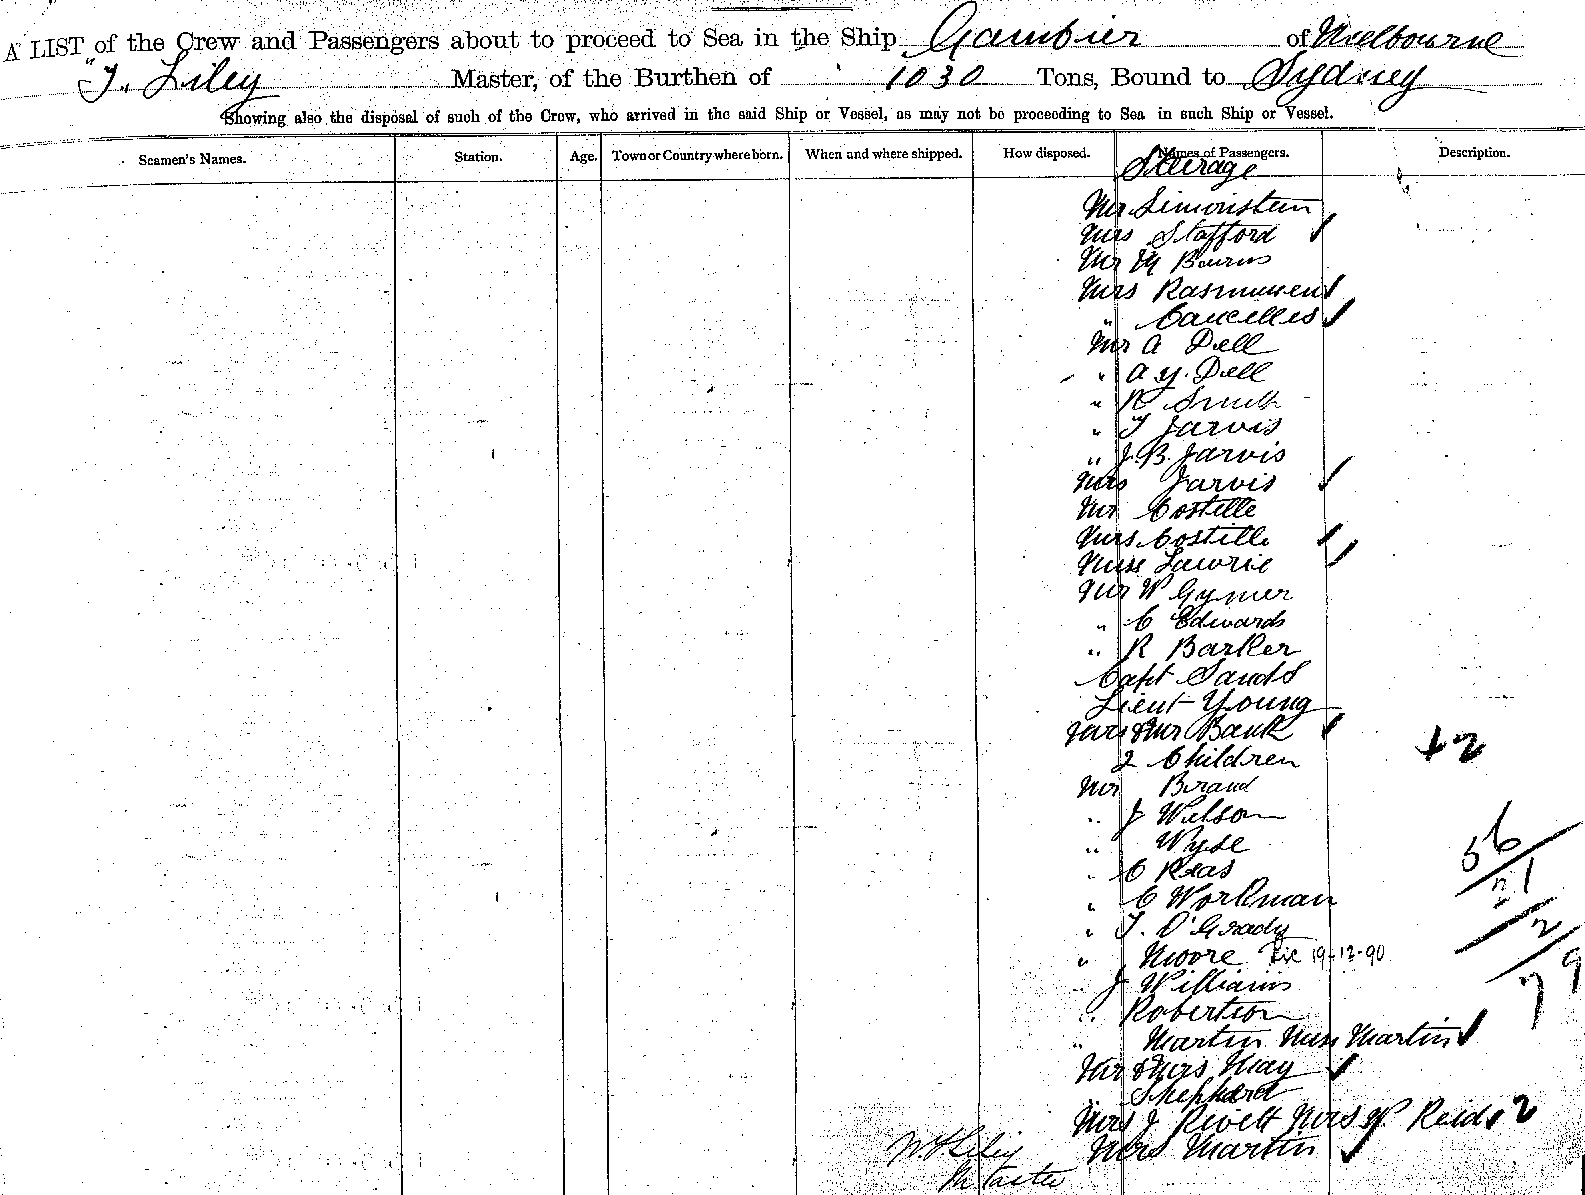 A LIST of the Crew and Passengers about to proceed to Sea in the Ship Gambier of Melbourne
T. Liley Master, of the Burthen of 1030 Tons, Bound to Sydney
Showing also the disposal of such of the Crew, who arrived in the said Ship or Vessel, as may not be proceeding to Sea in such Ship or Vessel.
Seamen's Names. Station. Age. Town or Country where born. When and where shipped. How disposed. Names of Passengers. Description.
Steerage
Mr Simonstein
Mrs Stafford
Mr M Bourns
Mrs Rasmussen
" Cancellis
Mr A Dell
" A Y. Dell
" R Smith
" T Jarvis
" J. B. Jarvis
Mrs Jarvis
Mr Costille
Mrs Costille
Miss Lawrie
Mr W Gymer
" C Edwards
" R Barker
Capt Sands
Lieut Young
Mrs & Mr Bank
2 Children +2
Mr Brand
" J Wilson
" Wyse
" C Reas
56
21
" C Workman
" T. O'Grady
2
" Moore Tic 19-12-90
79
" J Williams
" Robertson
" Martin Miss Martin
Mr & Mrs May
" Shepherd
Mrs J Rivett Mrs W Reid 2
Mrs Martin
Liley
Master